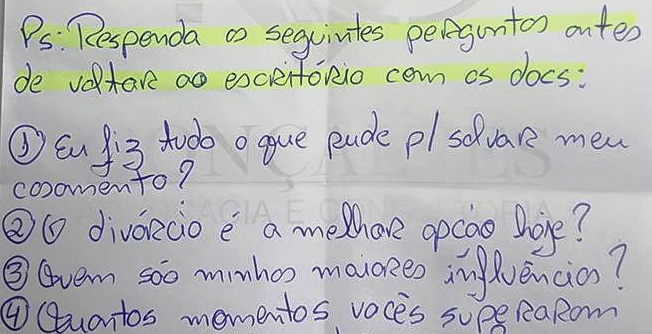 Ps: Responda as seguintes perguntas antes
de voltar ao escritório com os docs:
① Eu fiz tudo o que pude p/ salvar meu
casamento?
② O divórcio é a melhor opcão hoje?
③ Quem são minhas maiores influências?
④ Quantos momentos vocês superaram
ADVOCACIA E